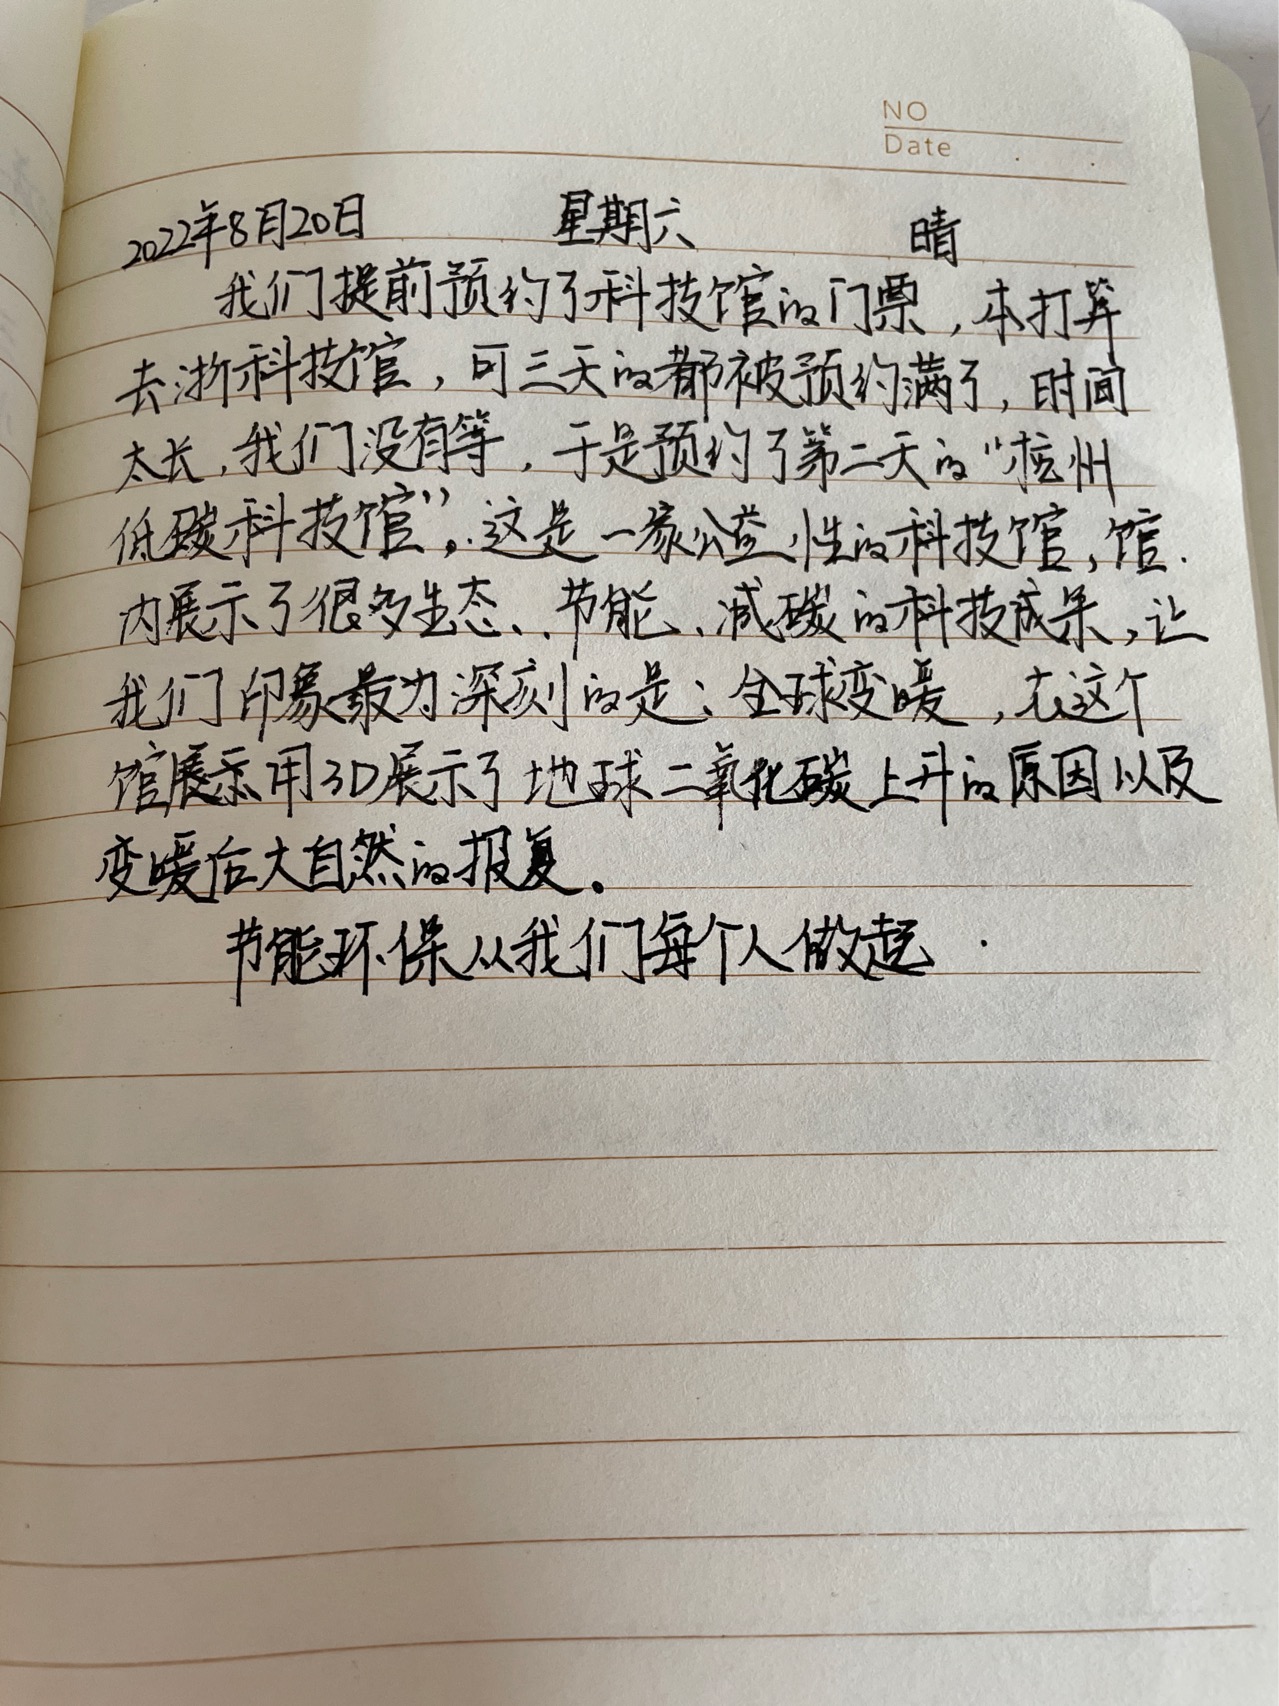 NO
Date
2022年8月20日 星期六 晴
我们提前预约了科技馆的门票，本打算
去浙科技馆，可三天的都被预约满了，时间
太长，我们没有等，于是预约了第二天的“杭州
低碳科技馆”。这是一家公益性的科技馆，馆
内展示了很多生态、节能、减碳的科技成果，让
我们印象最为深刻的是：全球变暖，在这个
馆展示用3D展示了地球二氧化碳上升的原因以及
变暖后大自然的报复。
节能环保从我们每个人做起.